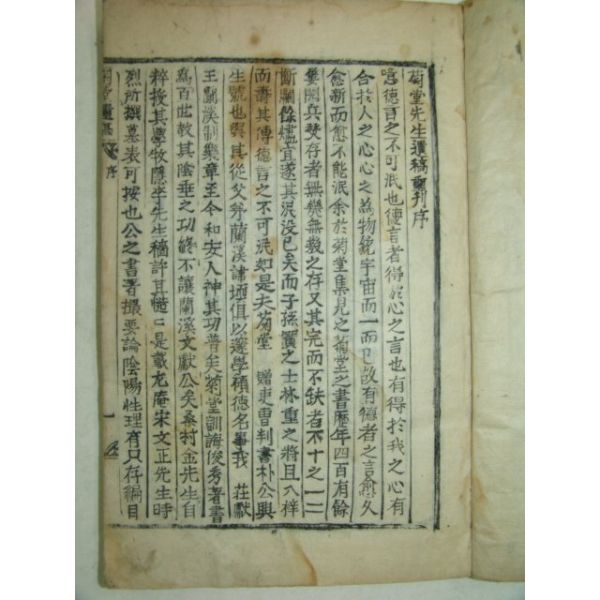 菊堂先生遺稿重刊序
噫德言之不可泯也德言者得於心之言也有得於我之心有
合於人之心心之爲物統宇宙而一而已故有德者之言愈久
愈新而愈不能泯余於菊堂集見之菊堂之書歷年四百有餘
屢閱兵燹存者無幾無幾之存又其完而不缺者不十之一二
斷爛餘燼宜遂其泯沒已矣而子孫寶之士林重之將且入梓
而壽其傳德言之不可泯如是夫菊堂 贈吏曹判書朴公興
生號也與其從父弟蘭溪諱堧俱以邃學碩德名 我 莊獻
王蘭溪制樂章至今和安人神其功普矣菊堂訓誨俊秀著書
爲百世敎其陰垂之功終不讓蘭溪文獻公矣桑村金先生自
粹授其學牧隱李先生穡許其 是載尤庵宋文正先生時
烈所撰墓表可按也公之書著撮要論陰陽性理有只存編目
序
一